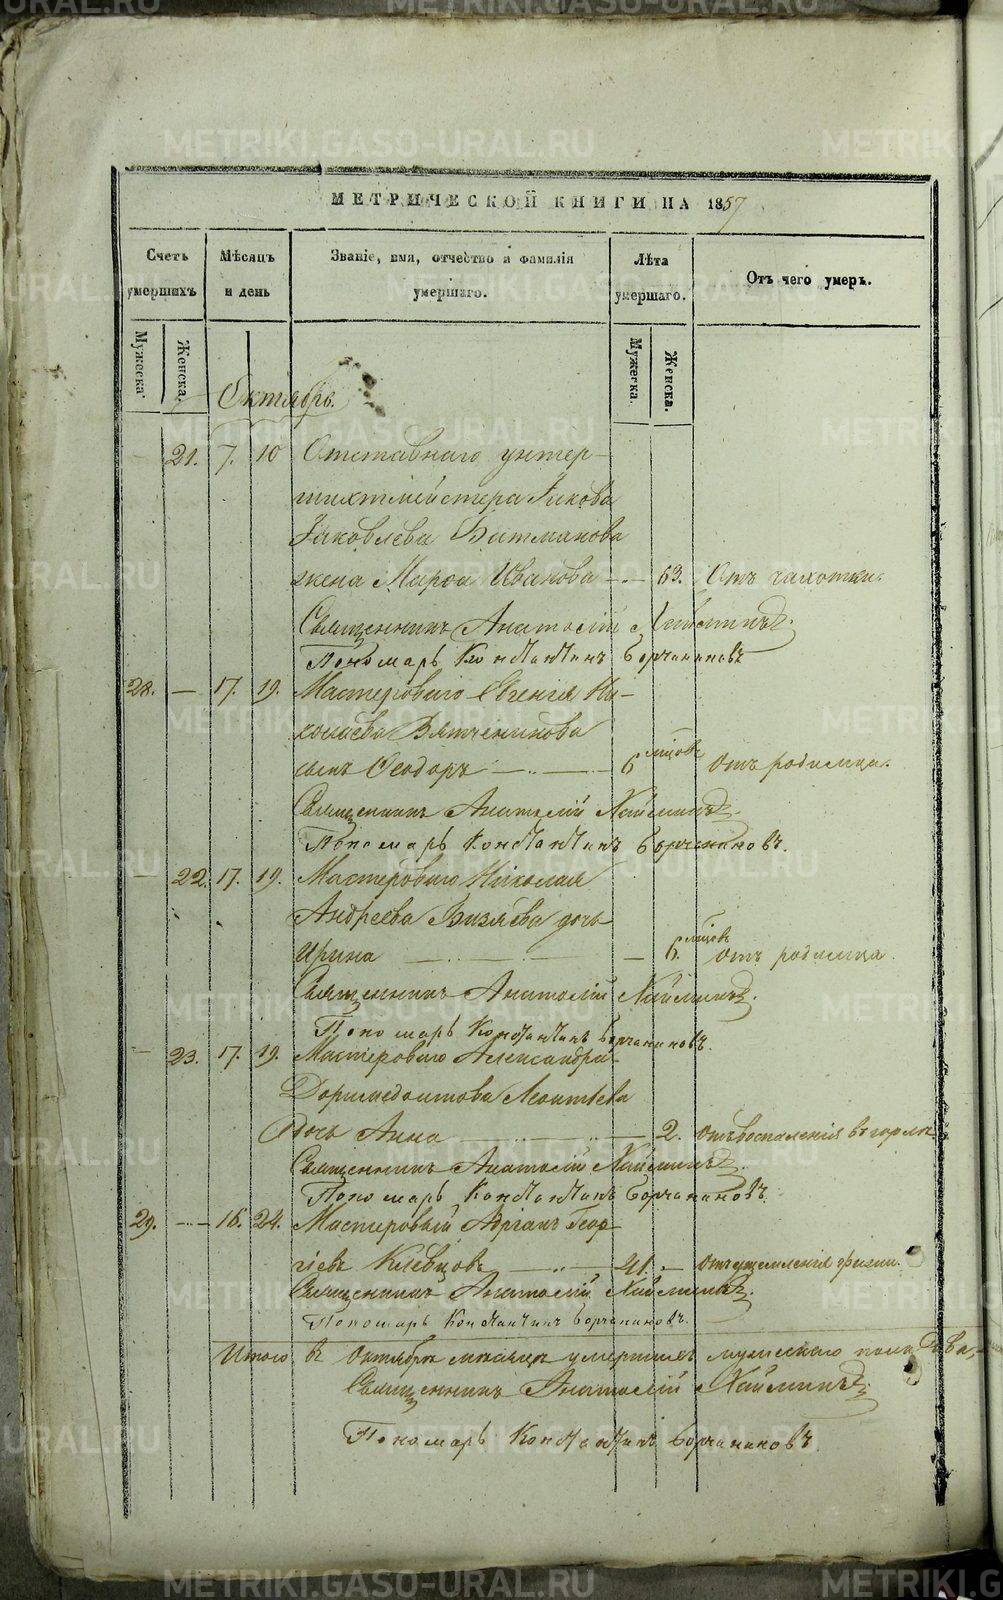 МЕТРИЧЕСКОЙ КНИГИ НА 1857
Счетъ умершихъ
Мѣсяцъ и день
Званіе, имя, отчество и фамилія умершаго.
Лѣта умершаго.
Отъ чего умеръ.
Мужеска.
Женска.
Мужеска.
Женска.
Октябрь.
21. 7. 10 Отставнаго унтер-
шихтмейстера Якова
Яковлева Батманова
жена Марѳа Иванова — 63. Отъ чахотки.
Священникъ Анатолій
Пономарь Константинъ Борчаниновъ
28. — 17. 19. Мастероваго Евгенія Ни-
колаева Вятченикова
сынъ Ѳеодоръ — 6 мцовъ отъ родимца.
Священникъ Анатолій
Пономарь Константинъ Борчаниновъ.
— 22. 17. 19. Мастероваго Николая
Андреева Визяева дочь
Ирина — 6. мцовъ отъ родимца.
Священникъ Анатолій
Пономарь Константинъ Борчаниновъ.
— 23. 17. 19. Мастероваго Александра
Доримедонтова Леонтьева
дочь Анна — 2. отъ воспаленія въ горлѣ
Священникъ Анатолій
Пономарь Константинъ Борчаниновъ
29. — 16. 24. Мастеровый Адріанъ Геор-
гіевъ Клевцовъ — 41. — отъ ущемленія грыжи.
Священникъ Анатолій
Пономарь Константинъ Борчаниновъ.
Итого въ Октябрѣ мѣсяцѣ умершихъ мужескаго пола два,
Священникъ Анатолій
Пономарь Константинъ Борчаниновъ
METRIKI.GASO-URAL.RU